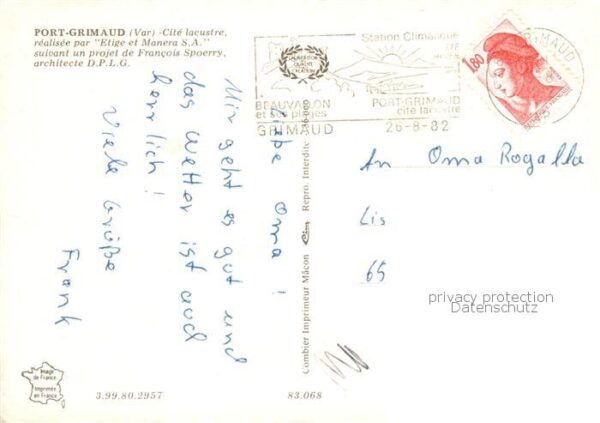 PORT-GRIMAUD (Var) -Cité lacustre,
réalisée par "Etige et Manera S.A."
suivant un projet de François Spoerry,
architecte D.P.L.G.
Station Climatique
BEAUVALLON
et ses plages
PORT-GRIMAUD
cité lacustre
GRIMAUD
26-8-82
GRIMAUD
1,80
Liebe Oma!
Mir geht es gut und
das Wetter ist auch
herrlich!
Viele Grüße
Frank
An Oma Rogalla
Lis
65
Combier Imprimeur Mâcon
Cim
Repro. Interdite
privacy protection
Datenschutz
Image
de France
Imprimée
en France
3.99.80.2957
83.068